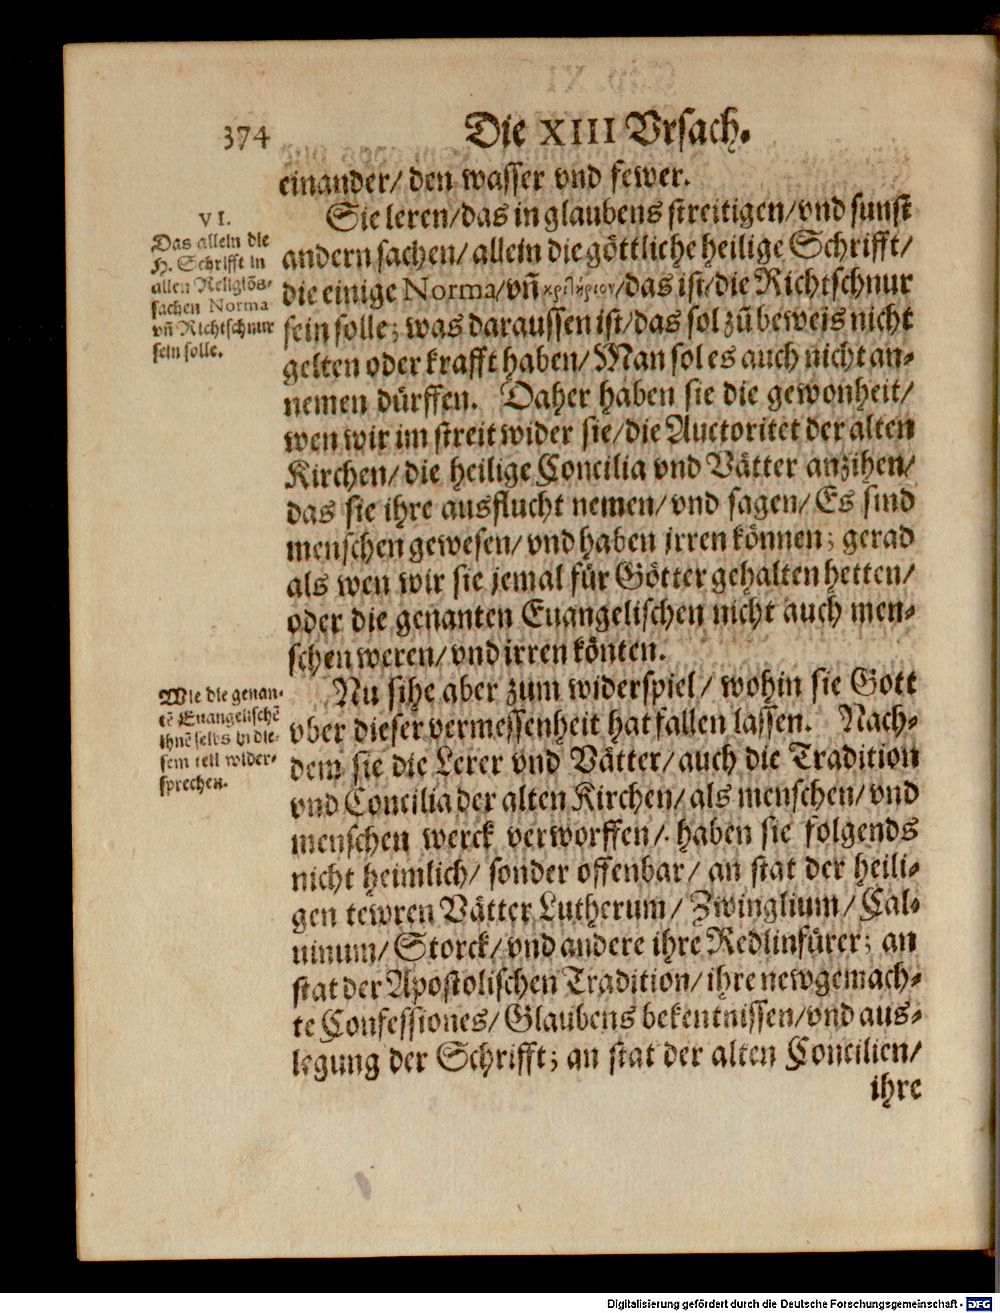 374
Die XIII Vrsach.
einander/ den wasser vnd fewer.
VI.
Das allein die
H. Schrifft in
allen Religiõs-
sachen Norma
vñ Richtschnur
sein solle.
Sie leren/das in glaubens streitigen/vnd sunst
andern sachen/ allein die göttliche heilige Schrifft/
die einige Norma/vñ κριτήριον/das ist/die Richtschnur
sein solle; was daraussen ist/das sol zũ beweis nicht
gelten oder krafft haben/ Man sol es auch nicht an-
nemen dürffen. Daher haben sie die gewonheit/
wen wir im streit wider sie/die Auctoritet der alten
Kirchen/ die heilige Concilia vnd Vätter anzihen/
das sie ihre ausflucht nemen/ vnd sagen/ Es sind
menschen gewesen/ vnd haben irren können; gerad
als wen wir sie jemal für Götter gehalten hetten/
oder die genanten Euangelischen nicht auch men-
schen weren/ vnd irren könten.
Wie die genan-
tẽ Euangelischẽ
ihnẽ selbs in die-
sem teil wider-
sprechen.
Nu sihe aber zum widerspiel/ wohin sie Gott
vber dieser vermessenheit hat fallen lassen. Nach-
dem sie die Lerer vnd Vätter/ auch die Tradition
vnd Concilia der alten Kirchen/ als menschen/ vnd
menschen werck verworffen/ haben sie folgends
nicht heimlich/ sonder offenbar/ an stat der heili-
gen tewren Vätter Lutherum/ Zwinglium/ Cal-
uinum/ Storck/ vnd andere ihre Redlinfürer; an
stat der Apostolischen Tradition/ ihre newgemach-
te Confessiones/ Glaubens bekentnissen/ vnd aus-
legung der Schrifft; an stat der alten Concilien/
ihre
Digitalisierung gefördert durch die Deutsche Forschungsgemeinschaft - DFG